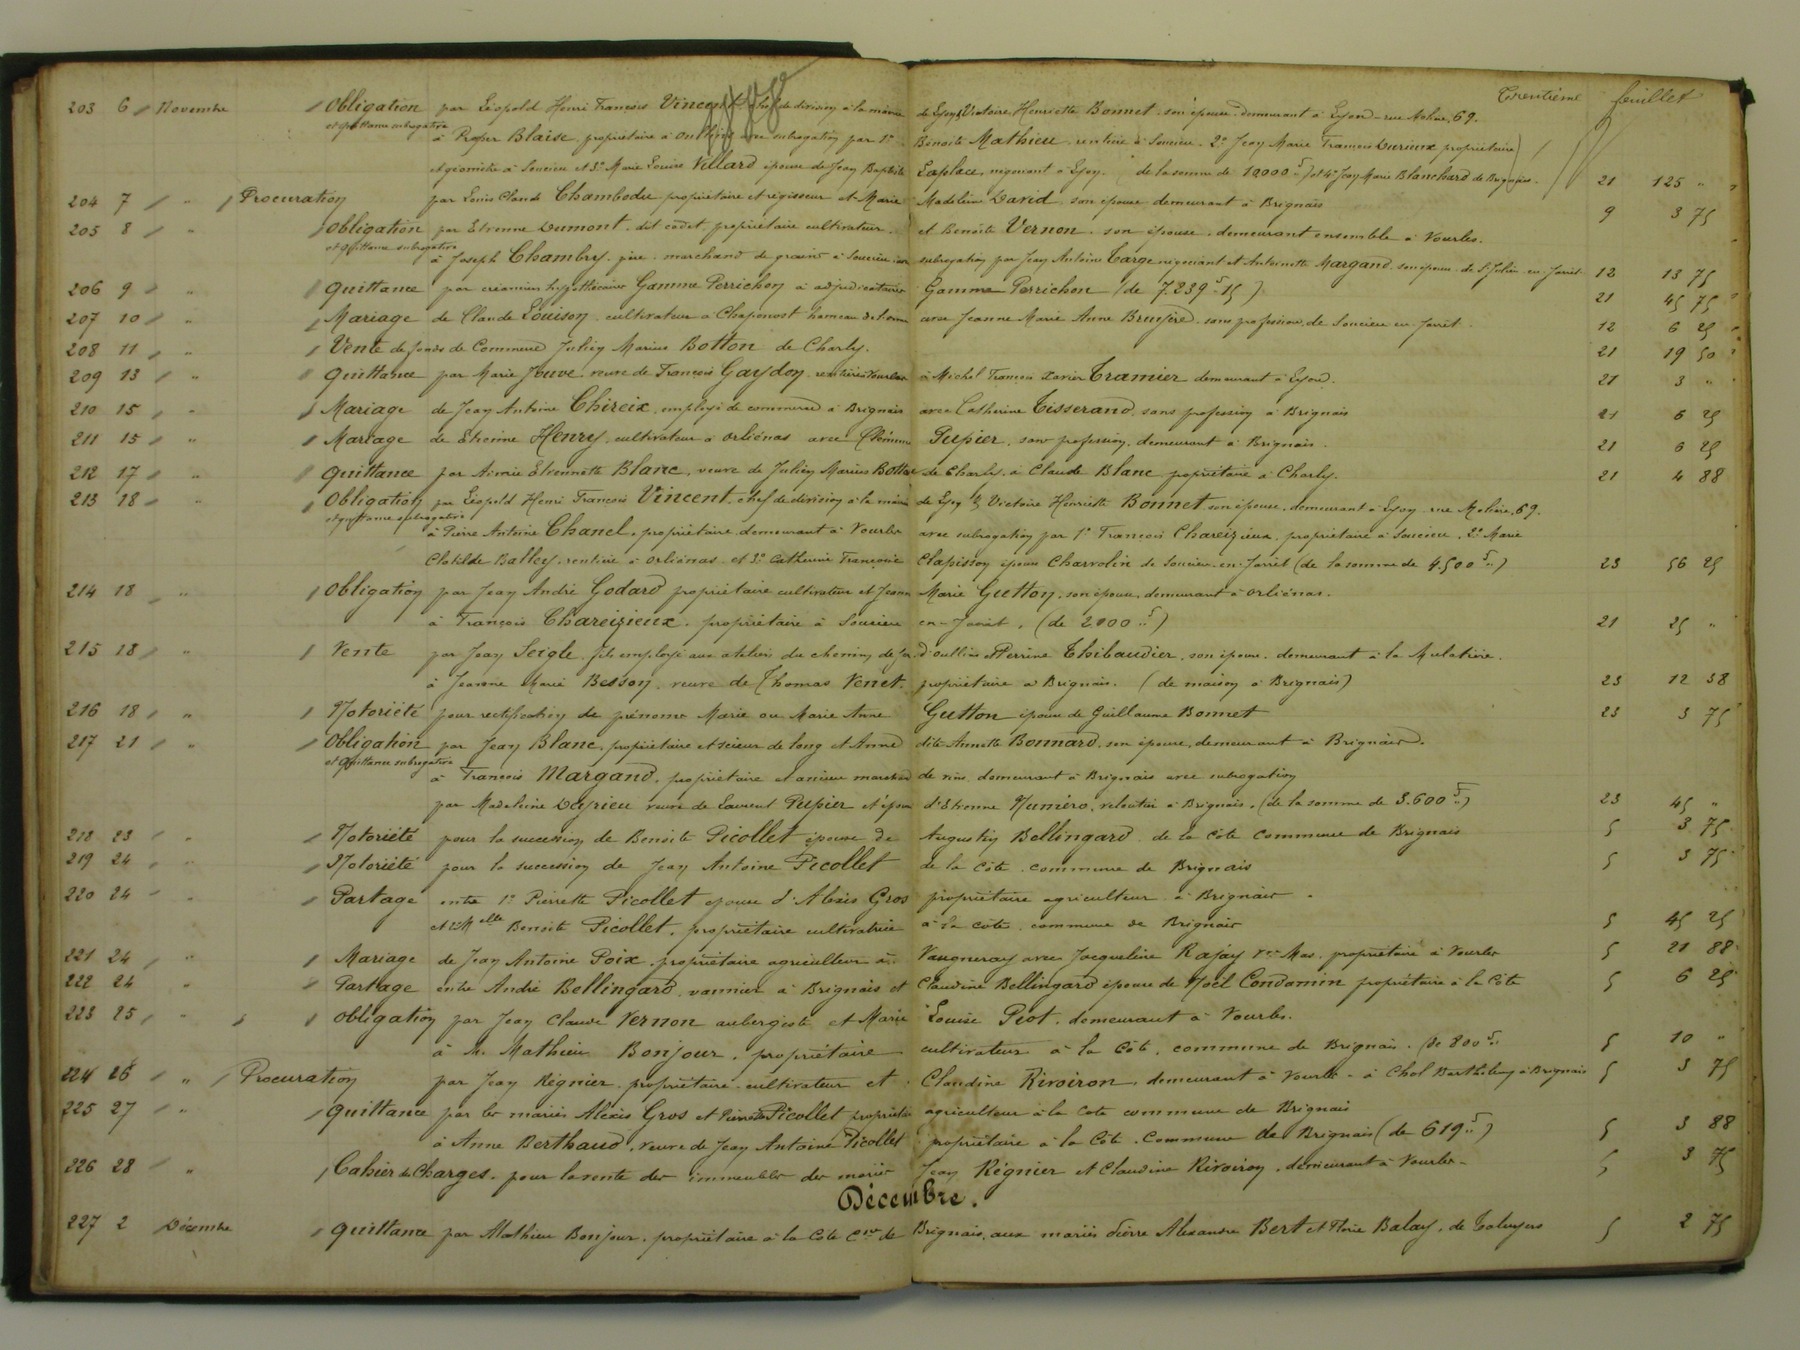 Trentième feuillet
203 6 Novembre Obligation par Léopold Henri François Vincent chef de division à la mairie de Lyon & Victoire Henriette Bonnet son épouse demeurant à Lyon rue Molière, 69.
et quittance subrogative à Blaise, propriétaire à Oullins avec subrogation par 1° Benoite Mathieu, rentière à Soucieu. 2° Jean Marie François Durieux propriétaire
et géomètre à Soucieu et 3° Marie Louise Villard épouse de Jean Baptiste Laplace, négociant à Lyon. (de la somme de 10000 f) et 4° Jean Marie Blanchard de Brignais. 21 125 "
204 7 " Procuration par Louis Claude Chambodu propriétaire et régisseur et Marie Madeleine David, son épouse demeurant à Brignais 9 3 75
205 8 " Obligation par Etienne Dumont, dit cadet, propriétaire cultivateur et Benoîte Vernon, son épouse, demeurant ensemble à Vourles.
et quittance subrogative à Joseph Chambry, père, marchand de grains à Soucieu avec subrogation par Jean Antoine Targe négociant et Antoinette Margand son épouse de St Julien en Jarret 12 13 75
206 9 " Quittance par créanciers hypothécaires Gamme Perrichon à adjudicataires Gamme Perrichon (de 7.239 f 15) 21 45 75
207 10 " Mariage de Claude Louison, cultivateur à Chaponost hameau de avec Jeanne Marie Anne Bruyère, sans profession, de Soucieu en Jarret. 12 6 25
208 11 " Vente de fonds de Commerce Julien Marius Botton de Charly. 21 19 50
209 13 " Quittance par Marie Jouve veuve de François Gaydon, rentière à Vourles à Michel François Xavier Tramier demeurant à Lyon. 21 3 "
210 15 " Mariage de Jean Antoine Chireix, employé de commerce à Brignais avec Catherine Tisserand, sans profession à Brignais 21 6 25
211 15 " Mariage de Etienne Henry, cultivateur à Orliénas avec Clémence Pupier, sans profession, demeurant à Brignais. 21 6 25
212 17 " Quittance par Aimée Etiennette Blanc, veuve de Julien Marius Botton de Charly, à Claude Blanc propriétaire à Charly. 21 4 88
213 18 " Obligation par Léopold Henri François Vincent, chef de division à la mairie de Lyon & Victoire Henriette Bonnet son épouse, demeurant à Lyon rue Molière, 69.
et quittance subrogative à Pierre Antoine Chanel, propriétaire demeurant à Vourles avec subrogation par 1° François Chareizieux, propriétaire à Soucieu, 2° Marie
Clotilde Balley, rentière à Orliénas et 3° Catherine Françoise Clapisson épouse Charvolin de Soucieu-en-Jarret (de la somme de 4.500 f ") 23 56 25
214 18 " Obligation par Jean André Godard propriétaire cultivateur et Jeanne Marie Gutton, son épouse, demeurant à Orliénas.
à François Chareizieux, propriétaire à Soucieu en-Jarret. (de 2000 f ") 21 25 "
215 18 " Vente par Jean Seigle, fils employé aux ateliers du chemin de fer d'Oullins et Perrine Thibaudier, son épouse, demeurant à la Mulatière.
à Jeanne Marie Besson, veuve de Thomas Venet, propriétaire à Brignais. (de maison à Brignais) 23 12 38
216 18 " Notoriété pour rectification de prénoms Marie ou Marie Anne Gutton épouse de Guillaume Bonnet 23 3 75
217 21 " Obligation par Jean Blanc, propriétaire et scieur de long et Anne dite Annette Bonnard, son épouse, demeurant à Brignais.
et Quittance subrogative à François Margand, propriétaire et ancien marchand de vins, demeurant à Brignais avec subrogation
par Madeleine Dayrieu veuve de Laurent Pupier et épouse d'Etienne Numéro, veloutier à Brignais. (de la somme de 3.600 f ") 23 45 "
218 23 " Notoriété pour la succession de Benoîte Picollet épouse de Augustin Bellingard, de la Côte commune de Brignais 5 3 75
219 24 " Notoriété pour la succession de Jean Antoine Picollet de la Côte, commune de Brignais 5 3 75
220 24 " Partage entre 1° Pierrette Picollet épouse d'Alexis Gros propriétaire agriculteur à Brignais.
et 2° Melle Benoîte Picollet, propriétaire cultivatrice à la Côte, commune de Brignais 5 45 25
221 24 " Mariage de Jean Antoine Poix, propriétaire agriculteur à Vaugneray avec Jacqueline Rajay vve Mas, propriétaire à Vourles 5 21 88
222 24 " Partage entre André Bellingard, vannier à Brignais et Claudine Bellingard épouse de Noël Condamin propriétaire à la Côte 5 6 25
223 25 " Obligation par Jean Claude Vernon aubergiste et Marie Louise Piot, demeurant à Vourles.
à M. Mathieu Bonjour, propriétaire cultivateur à la Côte, commune de Brignais. (de 800 f " 5 10 "
224 26 " Procuration par Jean Régnier, propriétaire-cultivateur et Claudine Rivoiron, demeurant à Vourles - à Chol Barthélemy à Brignais 5 3 75
225 27 " Quittance par les mariés Alexis Gros et Pierrette Picollet propriétaire agriculteur à la Côte commune de Brignais
à Anne Berthaud, veuve de Jean Antoine Picollet propriétaire à la Côte, Commune de Brignais (de 619 f ") 5 3 88
226 28 " Cahier des Charges, pour la vente des immeubles des mariés Jean Régnier et Claudine Rivoiron, demeurant à Vourles - 5 3 75
Décembre.
227 2 Décembre Quittance par Mathieu Bonjour, propriétaire à la Côte Cne de Brignais, aux mariés Pierre Alexandre Bert et Marie Balay, de Taluyers 5 2 75